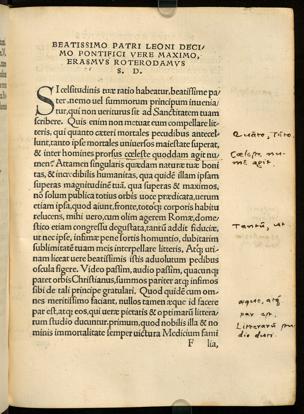 BEATISSIMO PATRI LEONI DECI/
MO PONTIFICI VERE MAXIMO,
ERASMVS ROTERODAMVS
S. D.
SI celsitudinis tuæ ratio habeatur, beatissime pa/
ter, nemo uel summorum principum inuenia/
tur, qui non ueriturus sit ad Sanctitatem tuam
scribere. Quis enim non metuat eum compellare lit
teris, qui quanto cæteri mortales pecudibus antecel/
lunt, tanto ipse mortales uniuersos maiestate superat,
& inter homines prorsus cœleste quoddam agit nu
men? Attamen singularis quædam naturæ tuæ boni
tas, & incredibilis humanitas, qua quidem illam ipsam
superas magnitudinem tuam, qua superas & maximos,
nō solum publica totius orbis uoce prædicata, uerum
etiam ipsa, quod aiunt, fronte, totoq; corporis habitu
relucens, mihi uero, cum olim agerem Romæ, dome/
stico etiam congressu degustata, tantū addit fiduciæ,
ut nec ipse, infimæ pene sortis homuntio, dubitarim
sublimitatē tuam meis interpellare literis, Atq; uti-
nam liceat uere beatissimis istis aduolutum pedibus
oscula figere. Video passim, audio passim, quacunq;
patet orbis Christianus, summos pariter atq; infimos
sibi de tali principe gratulari. Quod quidē cum om/
nes meritissimo faciant, nullos tamen æque id facere
par est, atq; eos, qui ueræ pietatis & optimarū littera/
rum studio ducuntur. primum, quod nobilis illa & no
minis immortalitate semper uictura Medicum fami
F lia,
Quāto, Tāto
Cœleste nu-
mē agit.
Tantū, ut
æque, atq;
par est.
Litterarū stu
dio duci.